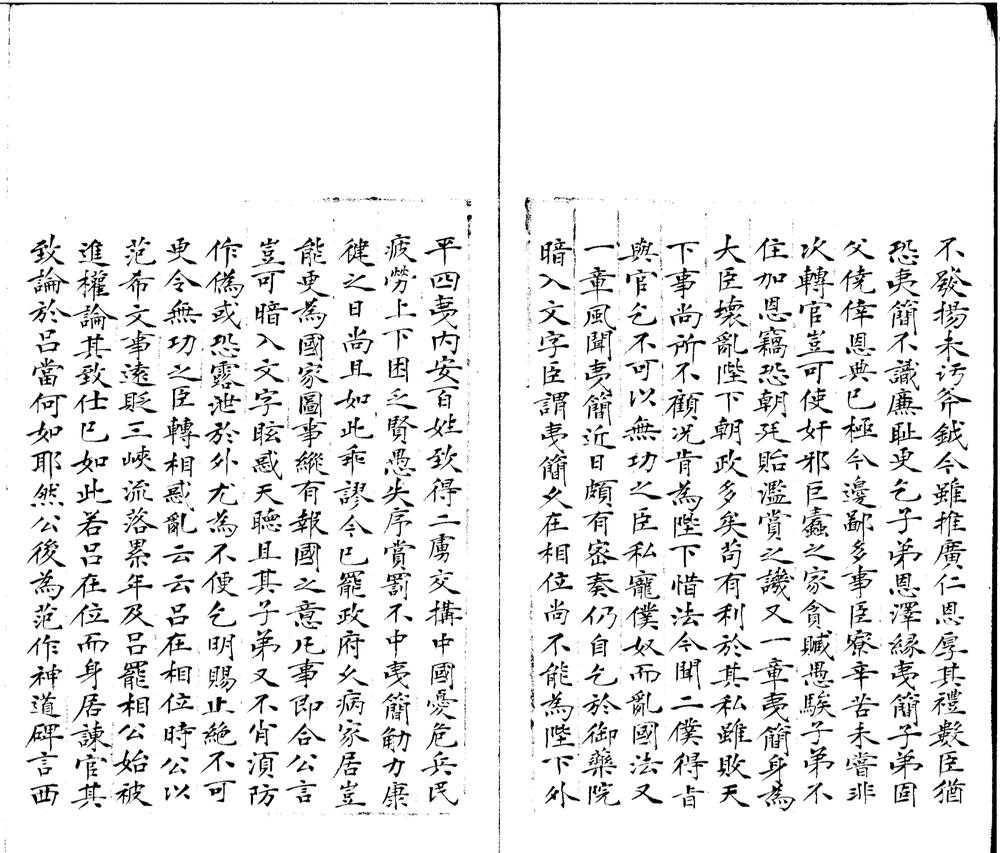 不發揚未汚斧鉞今雖推廣仁恩厚其禮數臣猶
恐夷簡不識廉耻更乞子弟恩澤緣夷簡子弟因
父僥倖恩典已極今邊鄙多事臣寮辛苦未嘗非
次轉官豈可使奸邪巨蠹之家貪贓愚騃子弟不
住加恩竊恐朝廷貽濫賞之譏又一章夷簡身為
大臣壞亂陛下朝政多矣苟有利於其私雖敗天
下事尚所不顧况肯為陛下惜法今聞二僕得旨
與官乞不可以無功之臣私寵僕奴而亂國法又
一章風聞夷簡近日頗有宻奏仍自乞於御藥院
暗入文字臣謂夷簡久在相位尚不能為陛下外
平四夷内安百姓致得二虜交搆中國憂危兵民
疲勞上下困乏賢愚失序賞罰不中夷簡觔力康
健之日尚且如此乖謬今已罷政府久病家居豈
能更為國家圖事縱有報國之意凡事即合公言
豈可暗入文字眩惑天聽且其子弟又不肖湏防
作僞或恐露泄於外尤為不便乞明賜止絶不可
更令無功之臣轉相惑亂云云吕在相位時公以
范希文事遠貶三峽流落累年及吕罷相公始被
進權論其致仕已如此若吕在位而身居諫官其
致論於吕當何如耶然公後為范作神道碑言西